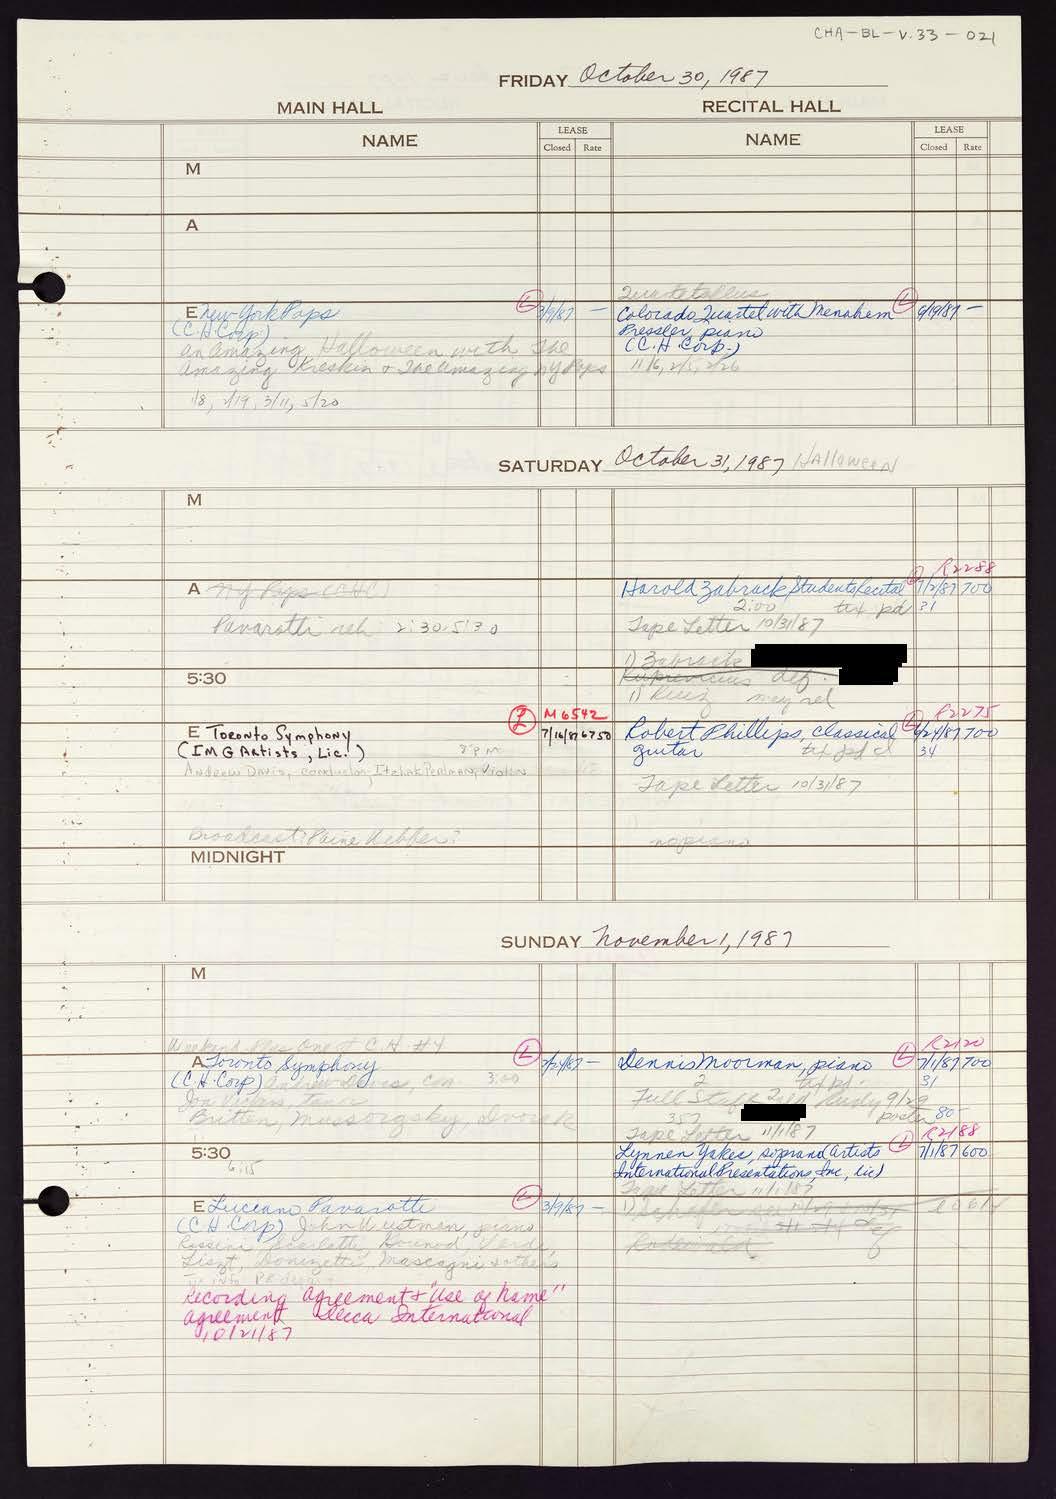 CHA-BL-V.33-021
FRIDAY October 30, 1987
MAIN HALL
RECITAL HALL
NAME
LEASE
Closed Rate
NAME
LEASE
Closed Rate
M
A
E New York Pops
(C.H. Corp)
3/9/87 —
An Amazing Halloween with The
Amazing Kreskin + The Amazing NY Pops
1/8, 2/19, 3/11, 5/20
Colorado Quartet with Menahem
9/9/87 —
Pressler, piano
(C.H. Corp.)
11/6, 2/5, 2/26
SATURDAY October 31, 1987 HALLOWEEN
M
A NY Pops (CHC)
Pavarotti reh 2:30-5:30
R2288
Harold Zabrack Students Recital
7/2/87 700
2:00 tix pd 31
Tape Letter 10/31/87
1) Zabrack
def.
1)
5:30
M6542
E Toronto Symphony
7/16/87 6750
(IMG Artists, Lic.)
8 PM
Andrew Davis, conductor, Itzhak Perlman, Violin
Broadcast? Paine Webber?
R2275
Robert Phillips, classical
6/24/87 700
guitar
tix pd
34
Tape Letter 10/31/87
no piano
MIDNIGHT
SUNDAY November 1, 1987
M
Weekend Plus One at C.H. #4
A Toronto Symphony
2/24/87 —
(C.H. Corp) Andrew Davis, con. 3:00
Jon Vickers, tenor
Britten, Mussorgsky, Dvorak
R2120
Dennis Moorman, piano
7/1/87 700
2 tix pd.
31
Full Staff
9/29
357
poster 80-
Tape Letter 11/1/87
5:30
6:15
R2188
Lynnen Yakes, soprano (Artists
7/1/87 600
International Presentations, Inc., Lic)
Tape Letter 11/1/87
E Luciano Pavarotti
3/9/87 —
(C.H. Corp) John Wustman, piano
Rossini, Scarlatti, Gounod, Verdi,
Liszt, Donizetti, Mascagni + others
Recording Agreement + "Use of Name"
Agreement Decca International
10/21/87